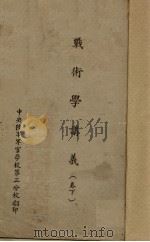 戰術學講義(卷下)
中央陸軍軍官學校第三分校翻印